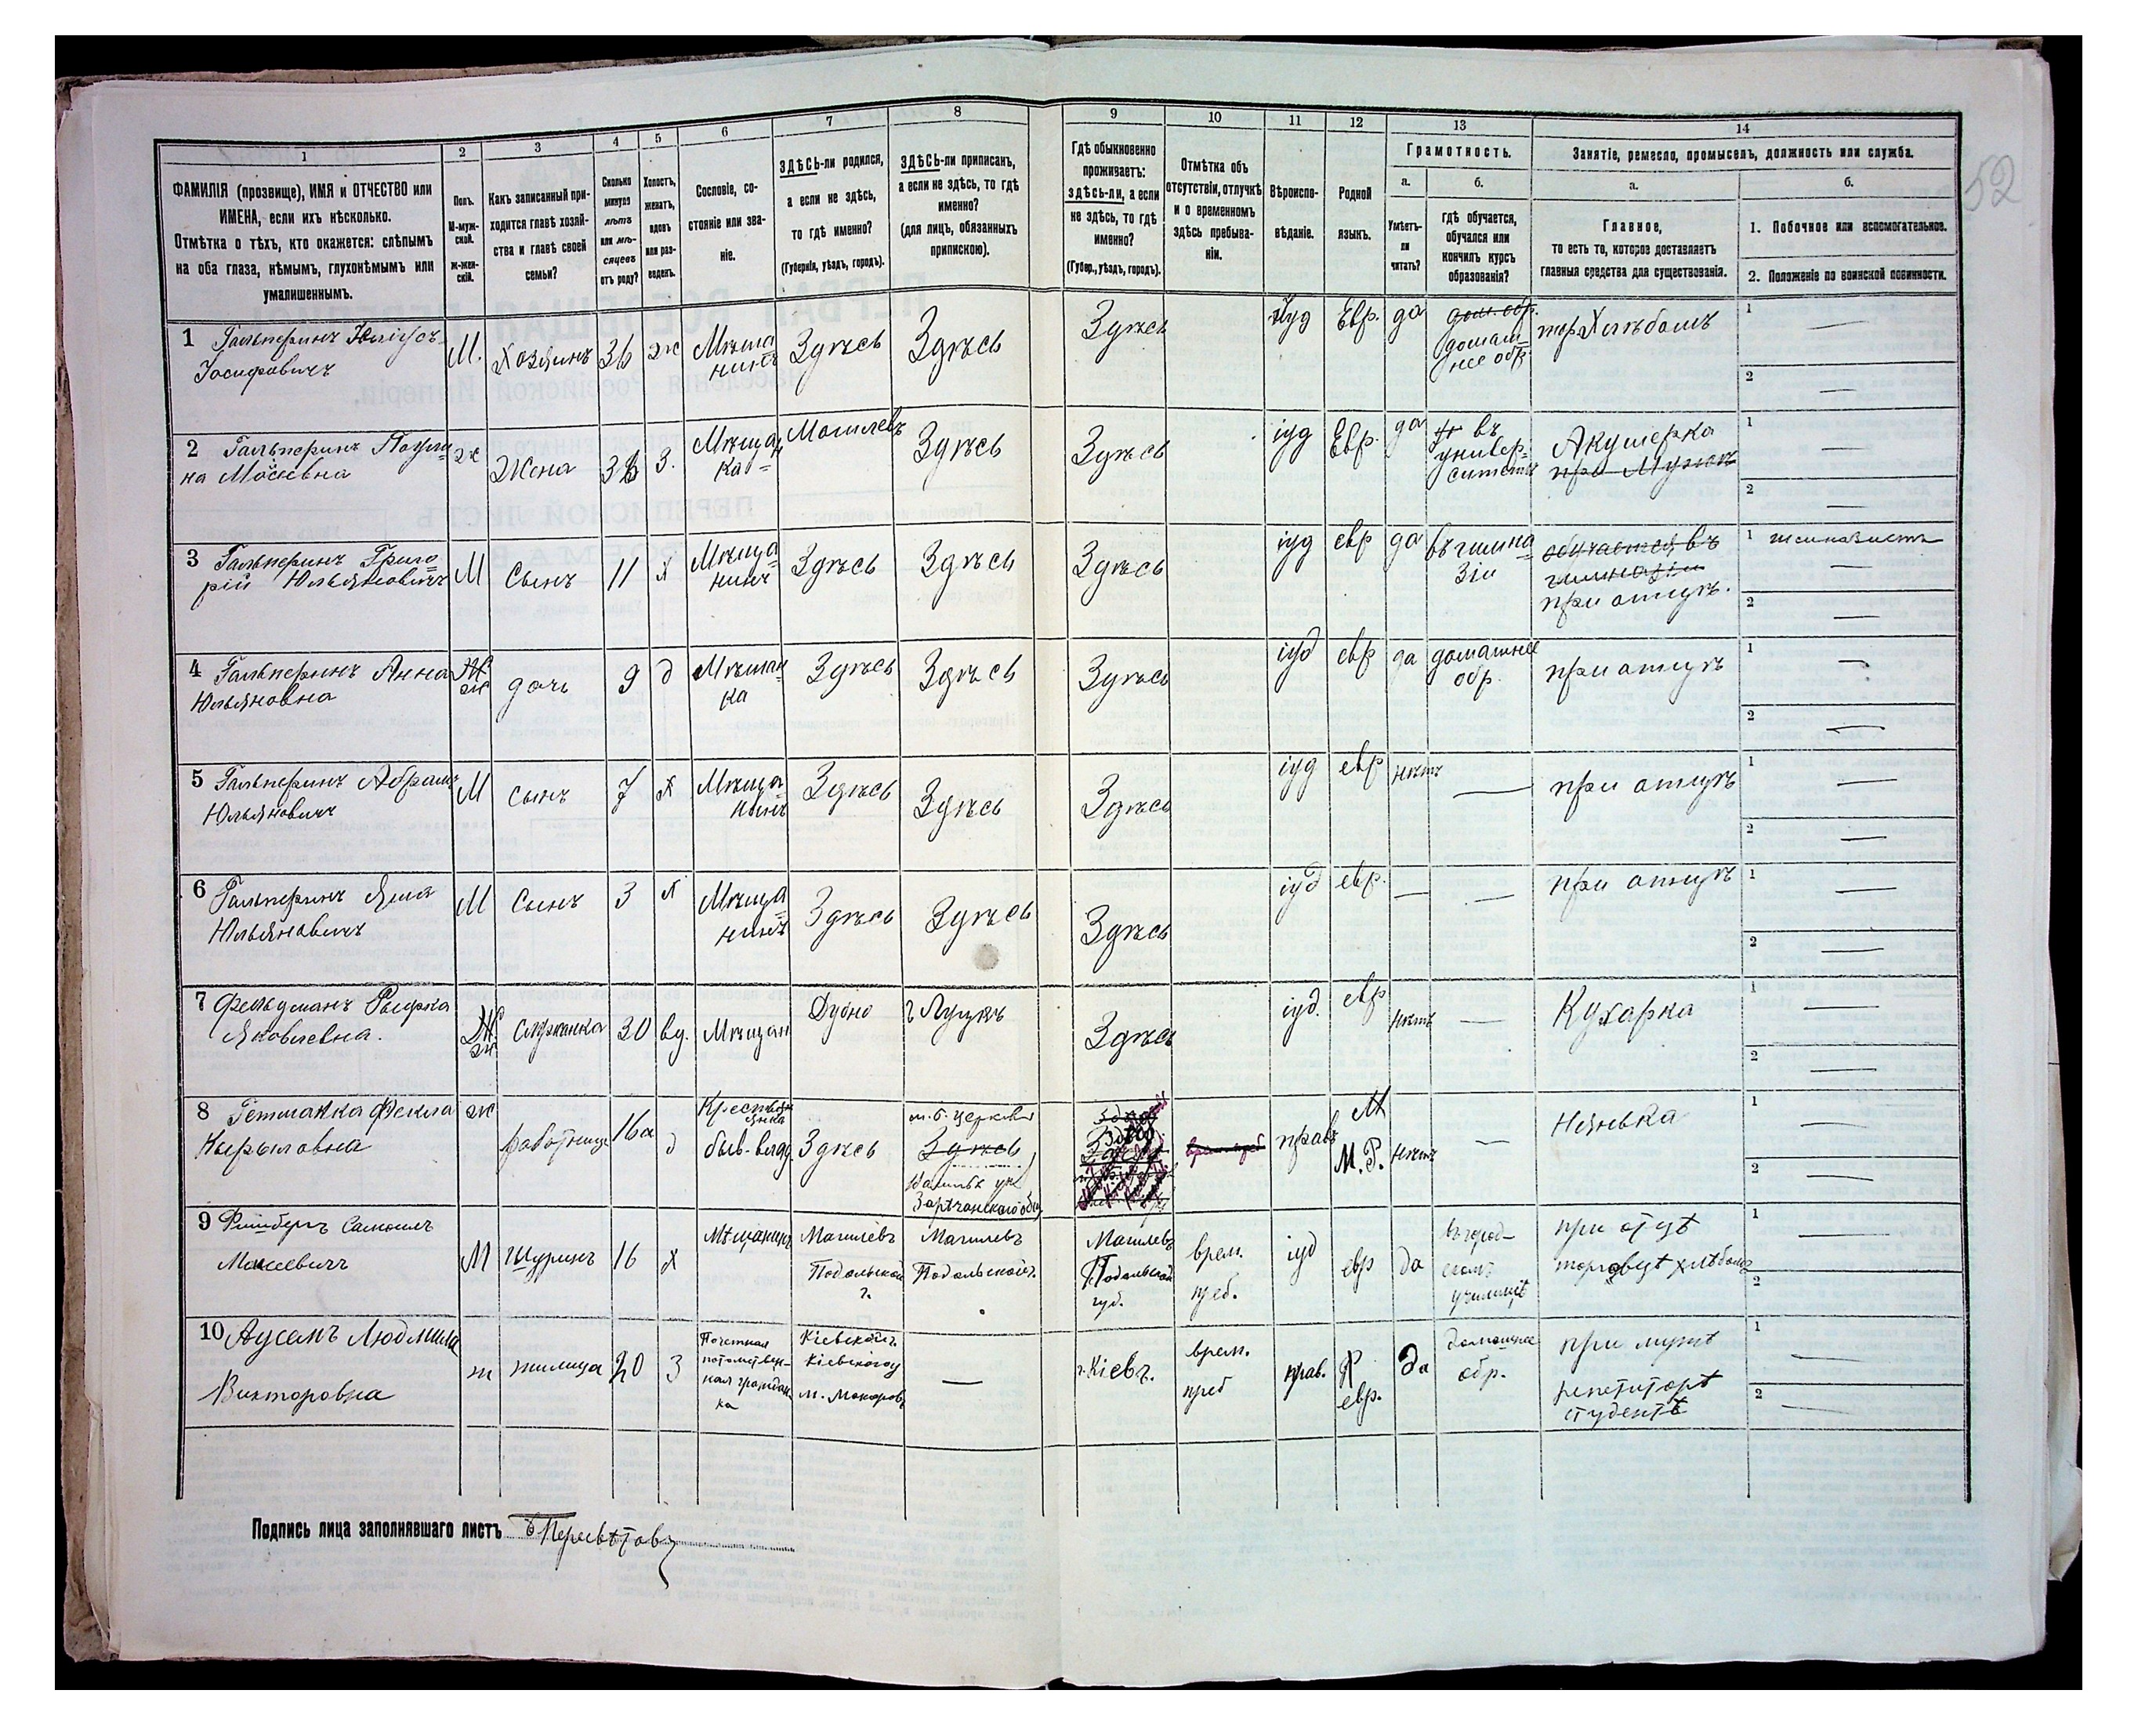 1 2 3 4 5 6 7 8 9 10 11 12 13 14
ФАМИЛІЯ (прозвище), ИМЯ и ОТЧЕСТВО или
ИМЕНА, если ихъ нѣсколько.
Отмѣтка о тѣхъ, кто окажется: слѣпымъ
на оба глаза, нѣмымъ, глухонѣмымъ или
умалишеннымъ.
Полъ.
М-муж-
ской.
ж-жен-
скій.
Какъ записанный при-
ходится главѣ хозяй-
ства и главѣ своей
семьи?
Сколько
минуло
лѣтъ
или мѣ-
сяцевъ
отъ роду?
Холостъ,
женатъ,
вдовъ
или раз-
веденъ.
Сословіе, со-
стояніе или зва-
ніе.
ЗДѢСЬ-ли родился,
а если не здѣсь,
то гдѣ именно?
(Губернія, уѣздъ, городъ).
ЗДѢСЬ-ли приписанъ,
а если не здѣсь, то гдѣ
именно?
(для лицъ, обязанныхъ
припискою).
Гдѣ обыкновенно
проживаетъ:
здѣсь-ли, а если
не здѣсь, то гдѣ
именно?
(Губер., уѣздъ, городъ).
Отмѣтка объ
отсутствіи, отлучкѣ
и о временномъ
здѣсь пребыва-
ніи.
Вѣроиспо-
вѣданіе.
Родной
языкъ.
Грамотность.
а.
Умѣетъ-
ли
читать?
б.
гдѣ обучается,
обучался или
кончилъ курсъ
образованія?
Занятіе, ремесло, промыселъ, должность или служба.
а.
Главное,
то есть то, которое доставляетъ
главныя средства для существованія.
б.
1. Побочное или вспомогательное.
2. Положеніе по воинской повинности.
52
1 Гальперинъ
Іосифовичъ
М.
Хозяинъ
36
ж
Мѣща
нинъ
Здѣсь
Здѣсь
Здѣсь
Іуд
Евр.
да
дом. обр.
домаш
нее обр
тор. Хлѣбомъ
1 —
2 —
2 Гальперинъ Паули
на Моисевна
ж
Жена
3.
Мѣщан
ка
Могилевъ
Здѣсь
Здѣсь
іуд
Евр.
да
въ
универ
ситетѣ
Акушерка
1 —
2 —
3 Гальперинъ Григо
рій Юльяновичъ
М
Сынъ
11
х
Мѣща
нинъ
Здѣсь
Здѣсь
Здѣсь
іуд
евр
да
въ гимна
зіи
обучается въ
гимназіи
при отцѣ.
1 гимназистъ
—
2 —
4 Гальперинъ Анна
Юльяновна
ж
дочь
9
д
Мѣщан
ка
Здѣсь
Здѣсь
Здѣсь
іуд
евр
да
домашнее
обр.
при отцѣ
1 —
2 —
5 Гальперинъ Абрамъ
Юльяновичъ
М
Сынъ
7
х
Мѣща
нинъ
Здѣсь
Здѣсь
Здѣсь
іуд
евр
нѣтъ
—
при отцѣ
1 —
2 —
6 Гальперинъ Яша
Юльяновичъ
М
Сынъ
3
х
Мѣща
нинъ
Здѣсь
Здѣсь
Здѣсь
іуд
евр.
—
—
при отцѣ
1 —
2 —
7 Фельдманъ Рыфка
Яковлевна.
ж
Служанка
30
вд.
Мѣщан
Дубно
г Луцкъ
Здѣсь
іуд.
евр
нѣтъ
—
Кухарка
1 —
2 —
8 Гетманка Фекла
Кырыловна
ж
работница
16
д
Крестья
янка
Здѣсь
Здѣсь
прав
М.Р.
нѣтъ
—
Нянька
1 —
2 —
9 Фишбергъ Самоилъ
Моисеевичъ
М
Шуринъ
16
х
Мѣщанинъ
Могилевъ
Подольской
г.
Могилевъ
Подольской г.
Могилевъ
Подольской
губ.
врем.
преб.
іуд
евр
да
въ город-
скомъ
училищѣ
при отцѣ
торговцѣ хлѣбомъ
1 —
2
10 Аусемъ Людмила
Викторовна
ж
жилица
20
З
Почетная
потомствен-
ная гражданка
Кіевской г.
Кіевскаго у
м. Макаровъ
—
г. Кіевъ.
врем.
преб
прав.
евр.
да
домашнее
обр.
при мужѣ
репетиторѣ
студентѣ
1 —
2 —
Подпись лица заполнявшаго листъ